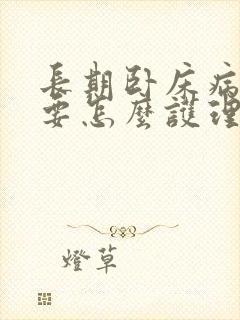 長期臥床病
要怎麼護理
燈草